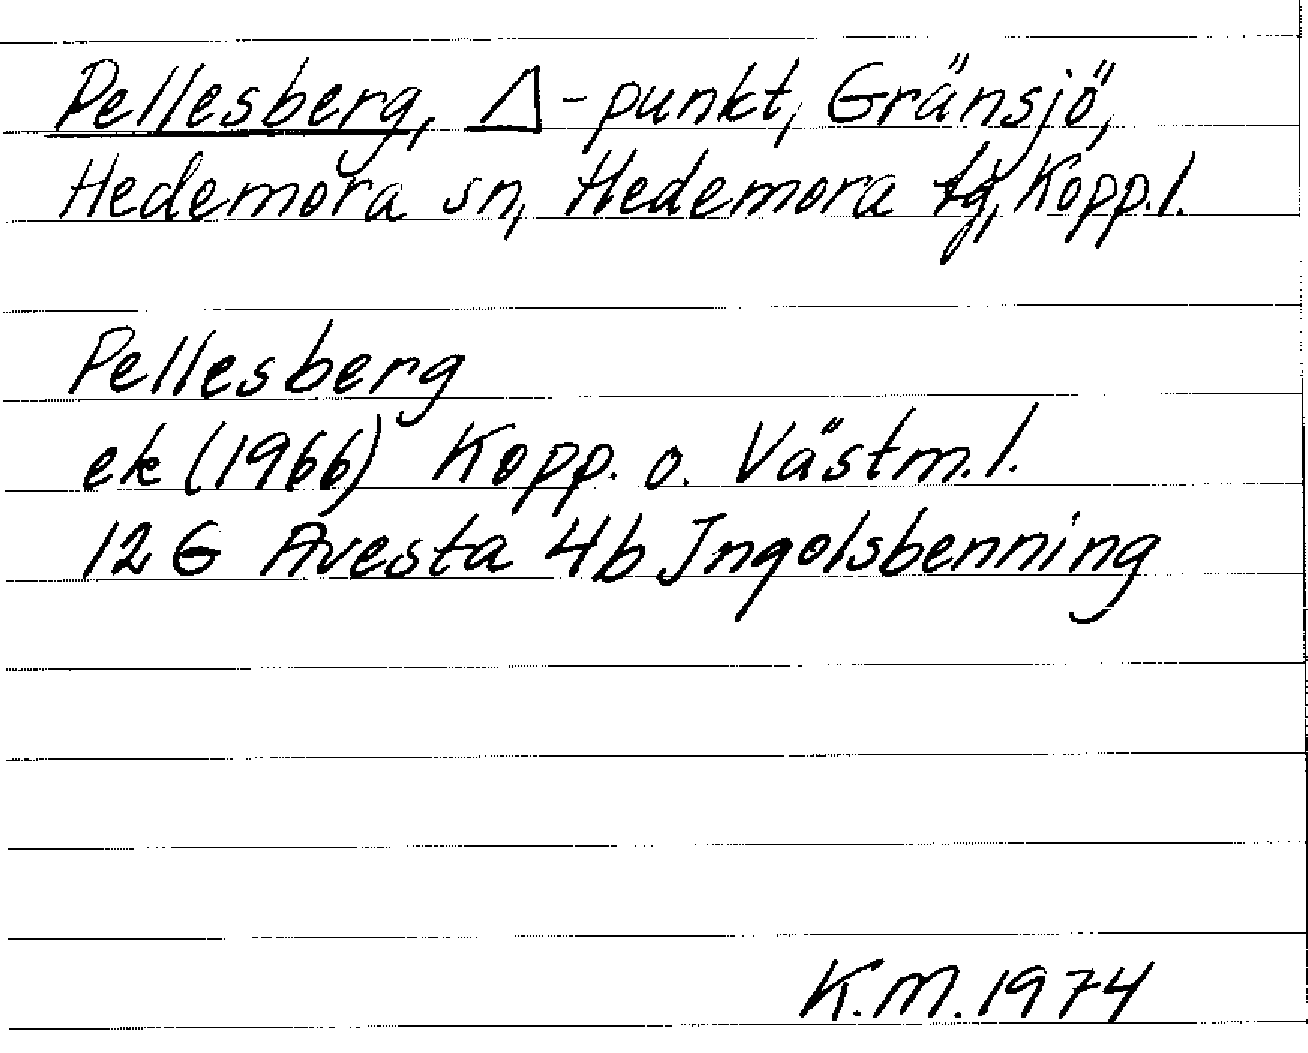 Pellesberg, Δ-punkt, Gränsjö,
Hedemora sn, Hedemora tg, Kopp.l.
Pellesberg
ek (1966) Kopp. o. Västm.l.
12G Avesta 4b Ingolsbenning
K.M. 1974